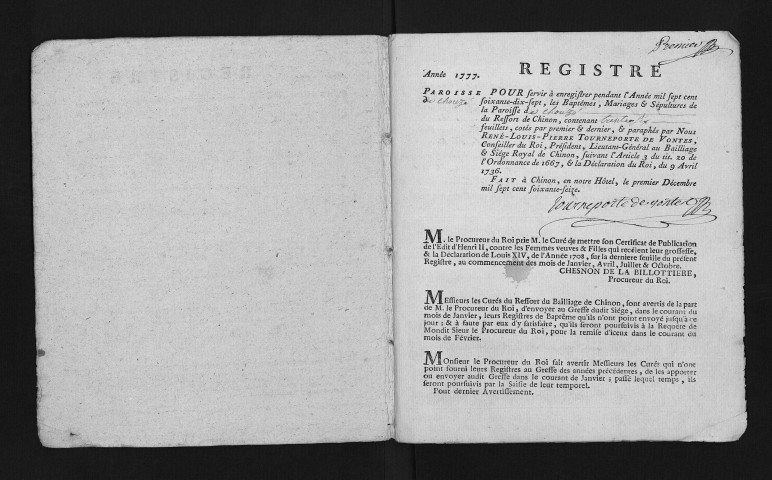 Premier
REGISTRE
Année 1777.
PAROISSE
de chouzé
POUR servir à enregistrer pendant l'Année mil sept cent
soixante-dix-sept, les Baptêmes, Mariages & Sépultures de
la Paroisse de chouzé
du Ressort de Chinon, contenant
feuillets, cotés par premier & dernier, & paraphés par Nous
RENÉ-LOUIS-PIERRE TOURNEPORTE DE VONTES,
Conseiller du Roi, Président, Lieutant-Général au Bailliage
& Siége Royal de Chinon, suivant l'Article 3 du tit. 20 de
l'Ordonnance de 1667, & la Déclaration du Roi, du 9 Avril
1736.
FAIT à Chinon, en notre Hôtel, le premier Décembre
mil sept cent soixante-seize.
Tourneporte de vontes
M. le Procureur du Roi prie M. le Curé de mettre son Certificat de Publication
de l'Edit d'Henri II, contre les Femmes veuves & Filles qui recélent leur grossesse,
& la Déclaration de Louis XIV, de l'Année 1708, sur la derniere feuille du présent
Registre, au commencement des mois de Janvier, Avril, Juillet & Octobre.
CHESNON DE LA BILLOTTIERE,
Procureur du Roi.
MEssieurs les Curés du Ressort du Bailliage de Chinon, sont avertis de la part
de M. le Procureur du Roi, d'envoyer au Greffe dudit Siége, dans le courant du
mois de Janvier, leurs Registres de Baptême qu'ils n'ont point envoyé jusqu'à ce
jour ; & à faute par eux d'y satisfaire, qu'ils seront poursuivis à la Requête de
Mondit Sieur le Procureur du Roi, pour la remise d'iceux dans le courant du
mois de Février.
MOnsieur le Procureur du Roi fait avertir Messieurs les Curés qui n'ont
point fourni leurs Registres au Greffe des années précédentes, de les apporter
ou envoyer audit Greffe dans le courant de Janvier ; passé lequel temps, ils
seront poursuivis par la Saisie de leur temporel.
Pour dernier Avertissement.